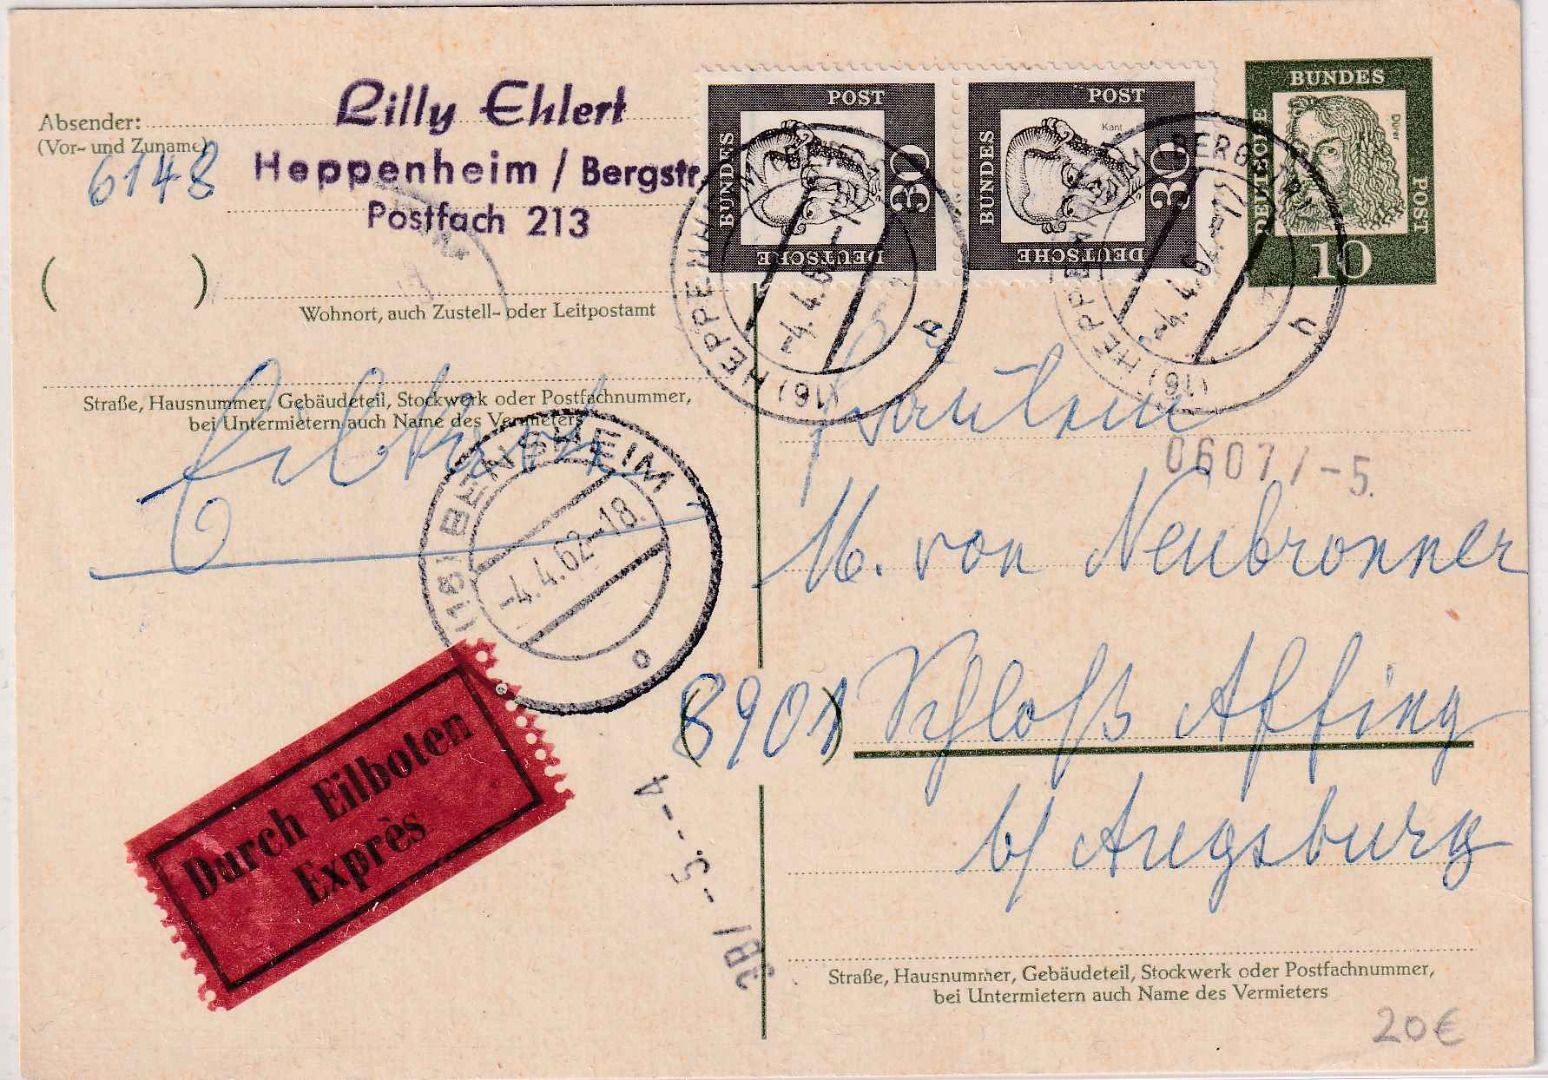 Absender:
(Vor- und Zuname)
6148
Lilly Ehlert
Heppenheim / Bergstr.
Postfach 213
( )
Wohnort, auch Zustell- oder Leitpostamt
Straße, Hausnummer, Gebäudeteil, Stockwerk oder Postfachnummer,
bei Untermietern auch Name des Vermieters
Eilboten
POST
BUNDES
DEUTSCHE
30
POST
BUNDES
DEUTSCHE
30
Kant
BUNDES
DEUTSCHE
POST
Dürer
10
(16) HEPPENHEIM (BERGSTR)
-4.4.62.-12
(16) HEPPENHEIM (BERGSTR)
-4.4.62.-12
(16) BENSHEIM
-4.4.62-18
o
Durch Eilboten
Exprès
Fräulein
0607/-5.
M. von Neubronner
(8901) Schloß Affing
b/ Augsburg
-5.--4
Straße, Hausnummer, Gebäudeteil, Stockwerk oder Postfachnummer,
bei Untermietern auch Name des Vermieters
20€